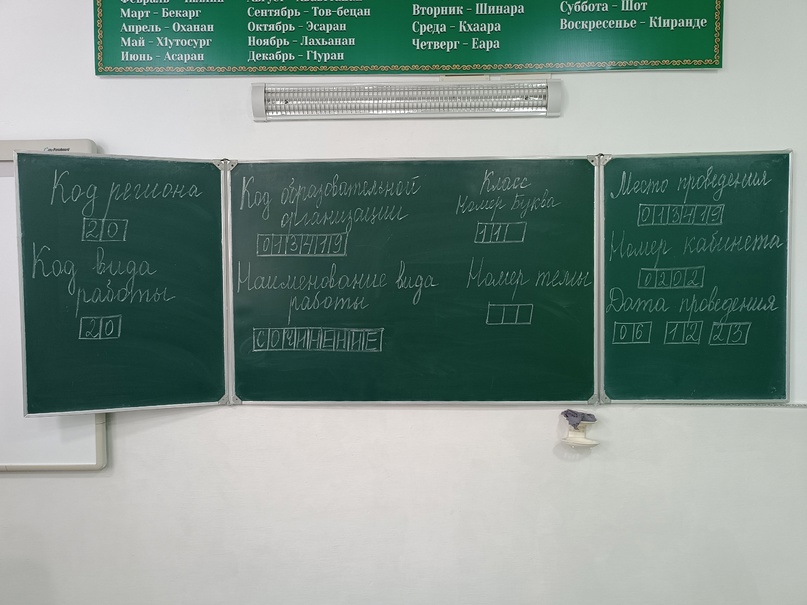 Март - Бекарг
Апрель - Оханан
Май - ХIутосург
Июнь - Асаран
Сентябрь - Тов-бецан
Октябрь - Эсаран
Ноябрь - Лахьанан
Декабрь - ГIуран
Вторник - Шинара
Среда - Кхаара
Четверг - Еара
Суббота - Шот
Воскресенье - КIиранде
Код региона
20
Код вида
работы
20
Код образовательной
организации
013419
Наименование вида
работы
СОЧИНЕНИЕ
Класс
Номер Буква
11
Номер темы
Место проведения
013419
Номер кабинета
0202
Дата проведения
06 12 23